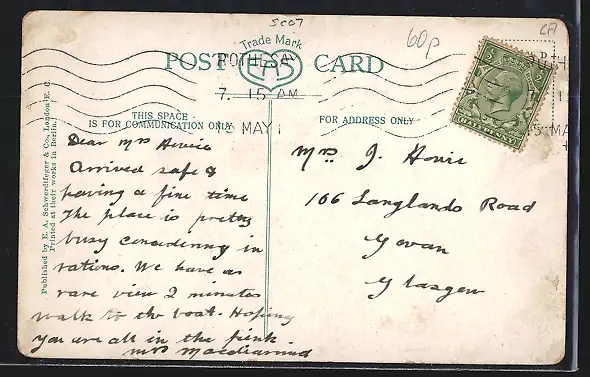 SCOT
60p
Trade Mark
POST CARD
ROTHESAY
7. 15 AM
MAY 1
THIS SPACE
IS FOR COMMUNICATION ONLY
FOR ADDRESS ONLY
Published by E. A. Schwerdtfeger & Co., London E. C.
Printed at their works in Berlin.
HALFPENNY
Dear Mrs Howie
Arrived safe &
having a fine time
The place is pretty
busy considering in
vations. We have a
rare view 2 minutes
walk to the boat. Hoping
you are all in the pink
Mrs Macdiarmid
Mrs J. Howie
106 Langlands Road
Govan
Glasgow